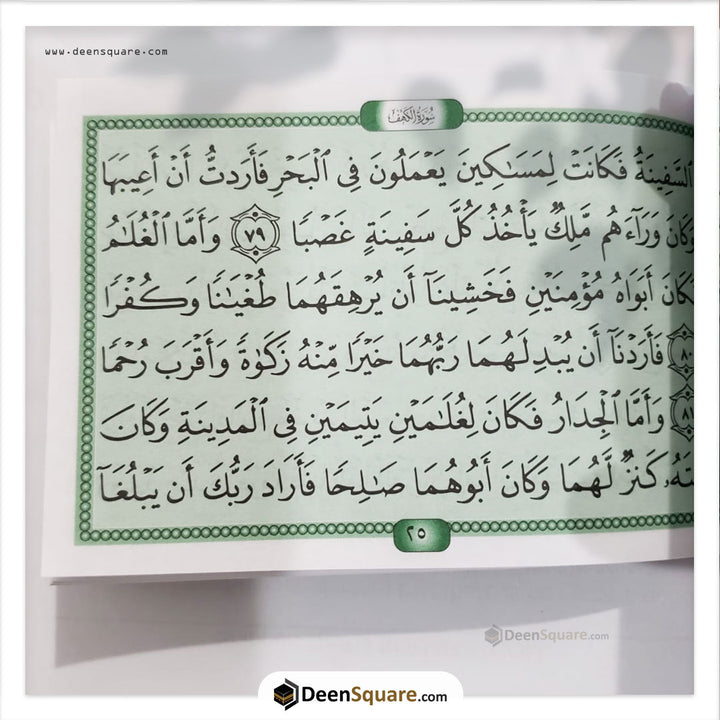 www.deensquare.com
سُورَةُ الكَهْفِ
السَّفِينَةُ فَكَانَتْ لِمَسَٰكِينَ يَعْمَلُونَ فِي الْبَحْرِ فَأَرَدتُّ أَنْ أَعِيبَهَا
وَكَانَ وَرَآءَهُم مَّلِكٌ يَأْخُذُ كُلَّ سَفِينَةٍ غَصْبًا ٧٩ وَأَمَّا الْغُلَٰمُ
فَكَانَ أَبَوَاهُ مُؤْمِنَيْنِ فَخَشِينَآ أَن يُرْهِقَهُمَا طُغْيَٰنًا وَكُفْرًا
٨٠ فَأَرَدْنَآ أَن يُبْدِلَهُمَا رَبُّهُمَا خَيْرًا مِّنْهُ زَكَوٰةً وَأَقْرَبَ رُحْمًا
٨١ وَأَمَّا الْجِدَارُ فَكَانَ لِغُلَٰمَيْنِ يَتِيمَيْنِ فِي الْمَدِينَةِ وَكَانَ
كَنزٌ لَّهُمَا وَكَانَ أَبُوهُمَا صَٰلِحًا فَأَرَادَ رَبُّكَ أَن يَبْلُغَآ
٢٥
DeenSquare.com
DeenSquare.com